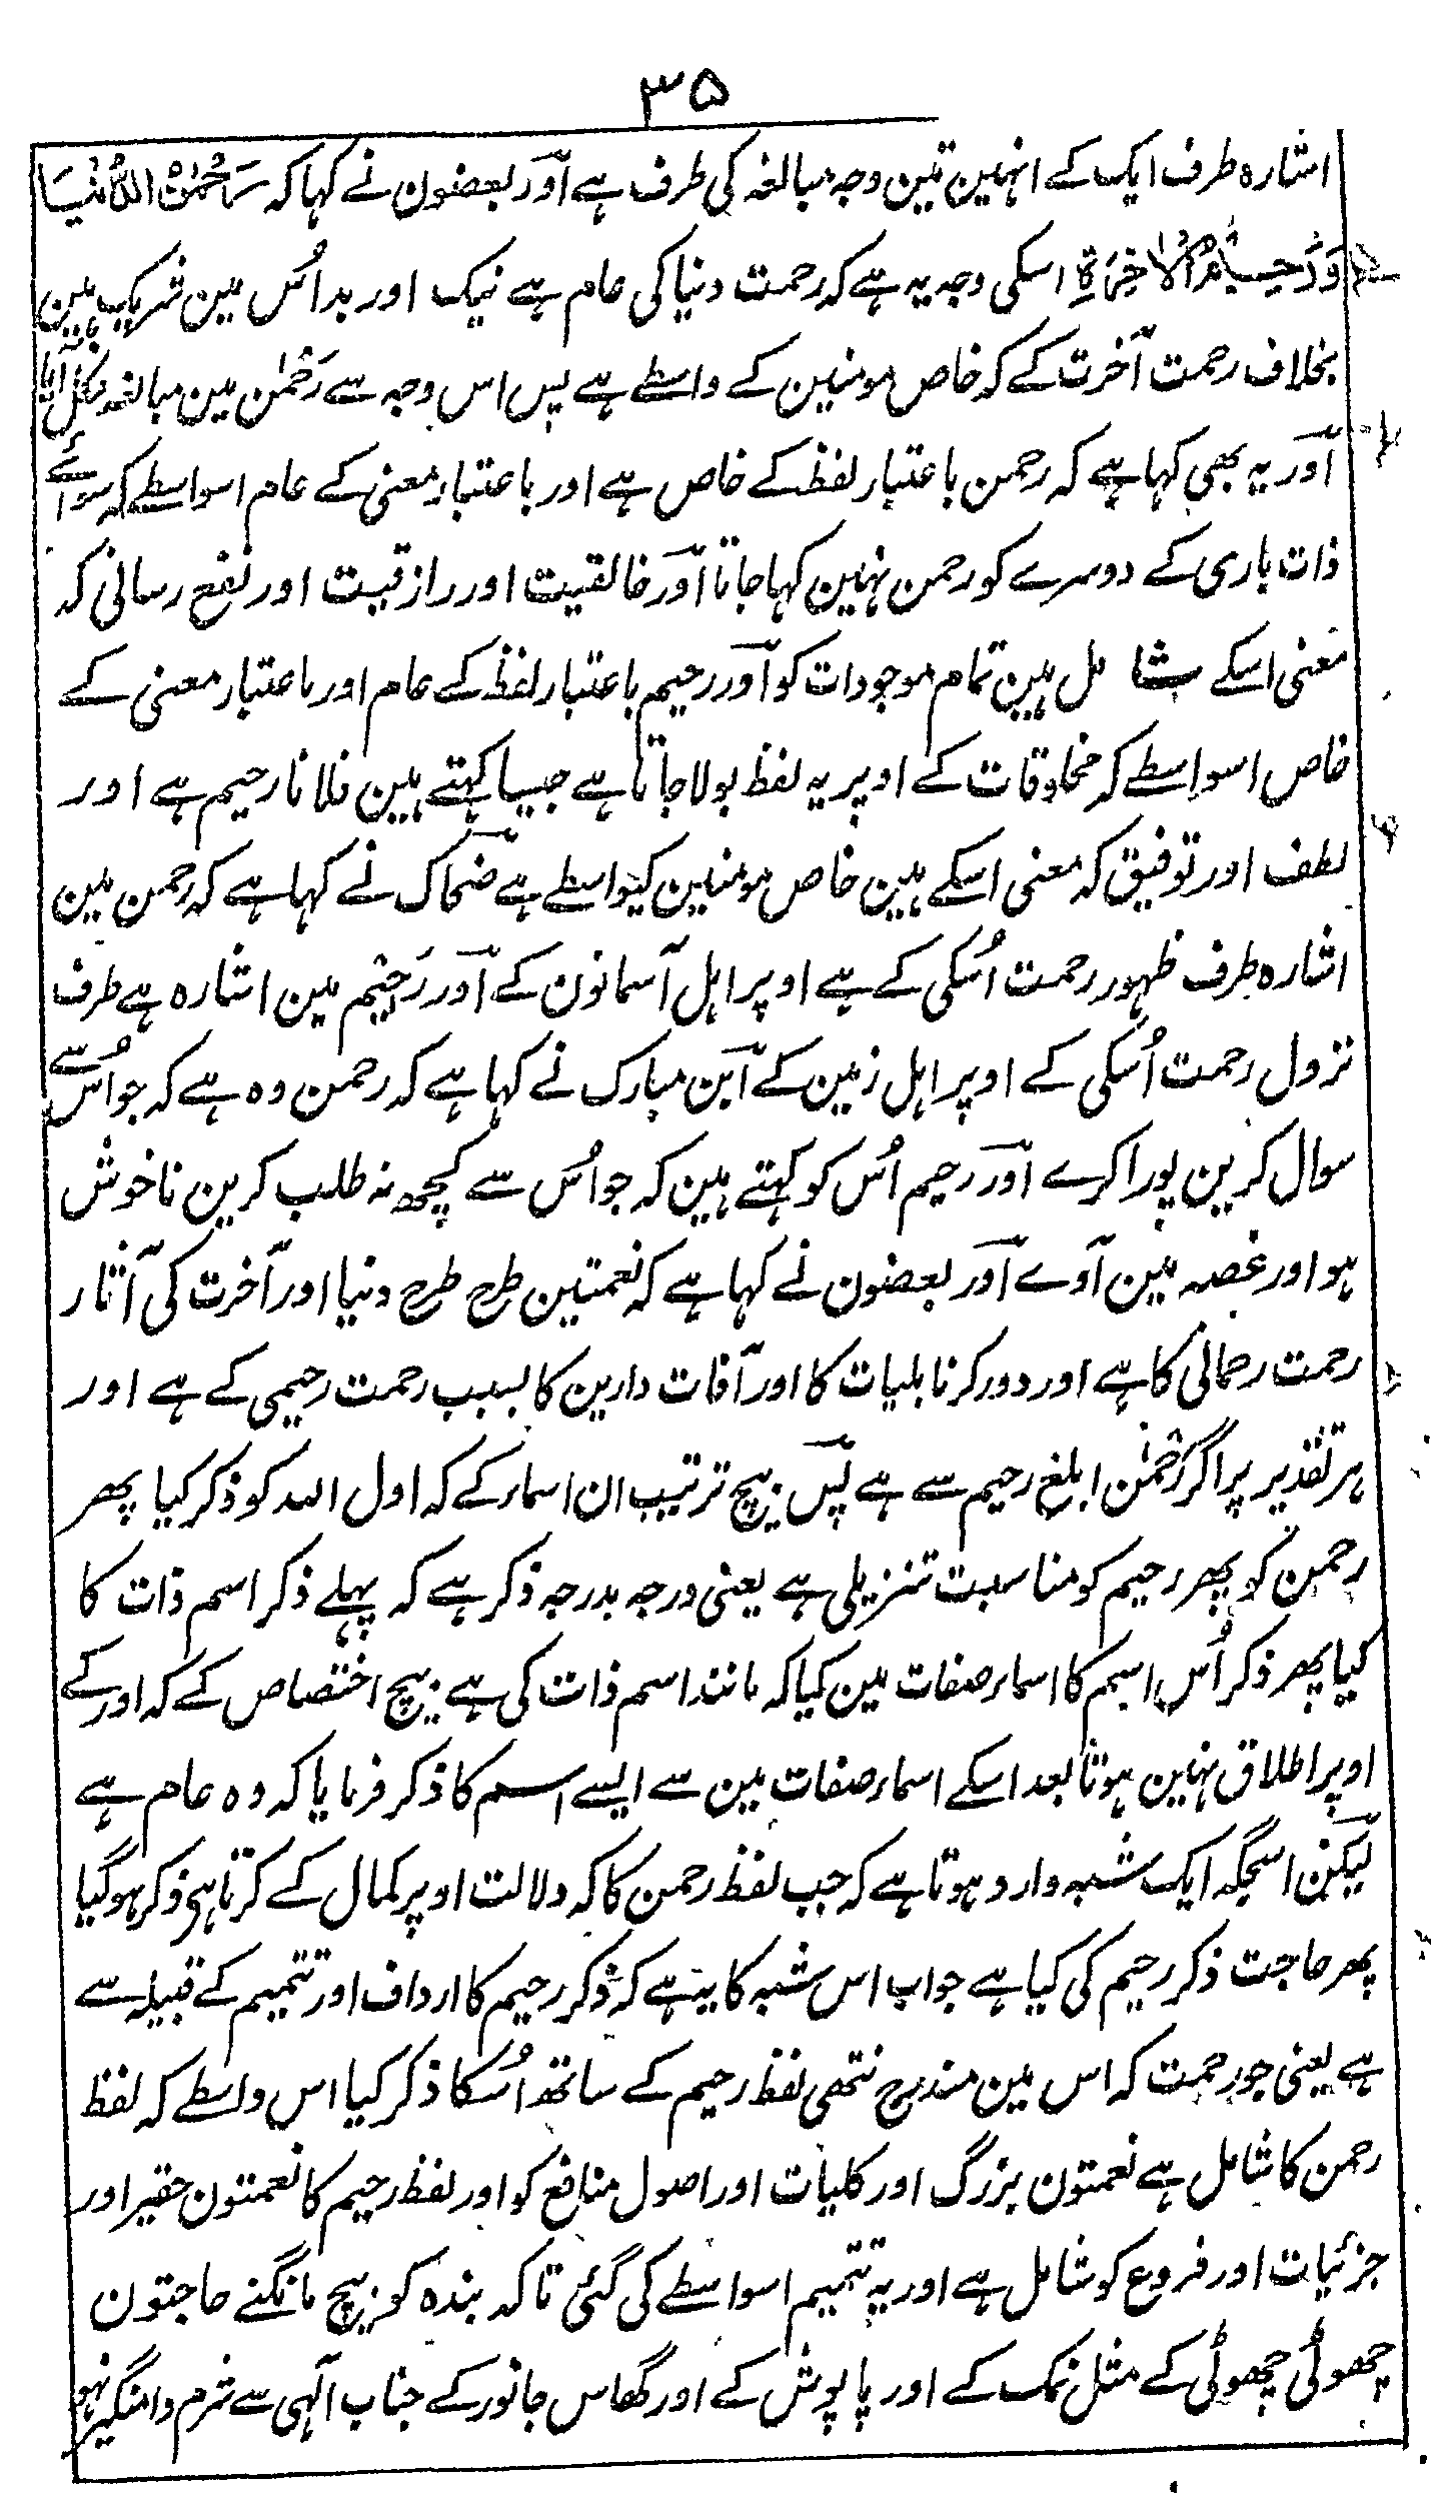 ۳۵
اشارہ طرف ایک کے انہین تین وجہ مبالغہ کی طرف ہے اور بعضون نے کہا کہ رَحْمٰنُ الدُّنْیَا
وَرَحِیْمُ الْاٰخِرَةِ اسکی وجہ یہ ہے کہ رحمت دنیا کی عام ہے نیک اور بد اُس مین شریک ہین
بخلاف رحمت آخرت کے کہ خاص مومنین کے واسطے ہے پس اس وجہ سے رَحْمٰن مین مبالغہ نکل آیا
اور یہ بھی کہا ہے کہ رحمن باعتبار لفظ کے خاص ہے اور باعتبار معنی کے عام اسواسطے کہ سوائے
ذات باری کے دوسرے کو رحمن نہین کہا جاتا اور خالقیت اور رازقیت اور نفع رسانی کہ
معنی اسکے شامل ہین تمام موجودات کو اور رحیم باعتبار لفظ کے عام اور باعتبار معنی کے
خاص اسواسطے کہ مخلوقات کے اوپر یہ لفظ بولا جاتا ہے جیسا کہتے ہین فلانا رحیم ہے اور
لطف اور توفیق کہ معنی اسکے ہین خاص مومنین کیواسطے ہے ضحاک نے کہا ہے کہ رحمن مین
اشارہ طرف ظہور رحمت اُسکی کے ہے اوپر اہل آسمانون کے اور رَحِیْم مین اشارہ ہے طرف
نزول رحمت اُسکی کے اوپر اہل زمین کے ابن مبارک نے کہا ہے کہ رحمن وہ ہے کہ جو اُس سے
سوال کرین پورا کرے اور رحیم اُس کو کہتے ہین کہ جو اُس سے کچھ نہ طلب کرین ناخوش
ہو اور غصہ مین آوے اور بعضون نے کہا ہے کہ نعمتین طرح طرح دنیا اور آخرت کی آثار
رحمت رحمانی کا ہے اور دور کرنا بلیات کا اور آفات دارین کا بسبب رحمت رحیمی کے ہے اور
ہر تقدیر پر اگر رَحْمٰن ابلغ رحیم سے ہے پس بیچ ترتیب ان اسمار کے کہ اول اللہ کو ذکر کیا پھر
رحمن کو پھر رحیم کو مناسبت تنزیلی ہے یعنی درجہ بدرجہ ذکر ہے کہ پہلے ذکر اسم ذات کا
کیا پھر ذکر اُس اسم کا اسمار صفات مین کیا کہ مانند اسم ذات کی ہے بیچ اختصاص کے کہ اور کے
اوپر اطلاق نہین ہوتا بعد اسکے اسمار صفات مین سے ایسے اسم کا ذکر فرمایا کہ وہ عام ہے
لیکن اسجگہ ایک شبہ وارد ہوتا ہے کہ جب لفظ رحمن کا کہ دلالت اوپر کمال کے کرتا ہی ذکر ہوگیا
پھر حاجت ذکر رحیم کی کیا ہے جواب اس شبہ کا یہ ہے کہ ذکر رحیم کا ارداف اور تتمیم کے قبیلہ سے
ہے یعنی جو رحمت کہ اس مین مندرج نتھی لفظ رحیم کے ساتھ اُسکا ذکر کیا اس واسطے کہ لفظ
رحمن کا شامل ہے نعمتون بزرگ اور کلیات اور اصول منافع کو اور لفظ رحیم کا نعمتون حقیر اور
جزئیات اور فروع کو شامل ہے اور یہ تتمیم اسواسطے کی گئی تاکہ بندہ کو بیچ مانگنے حاجتون
چھوٹی چھوٹی کے مثل نمک کے اور پاپوش کے اور گھاس جانور کے جناب الٰہی سے شرم دامنگیر نہو